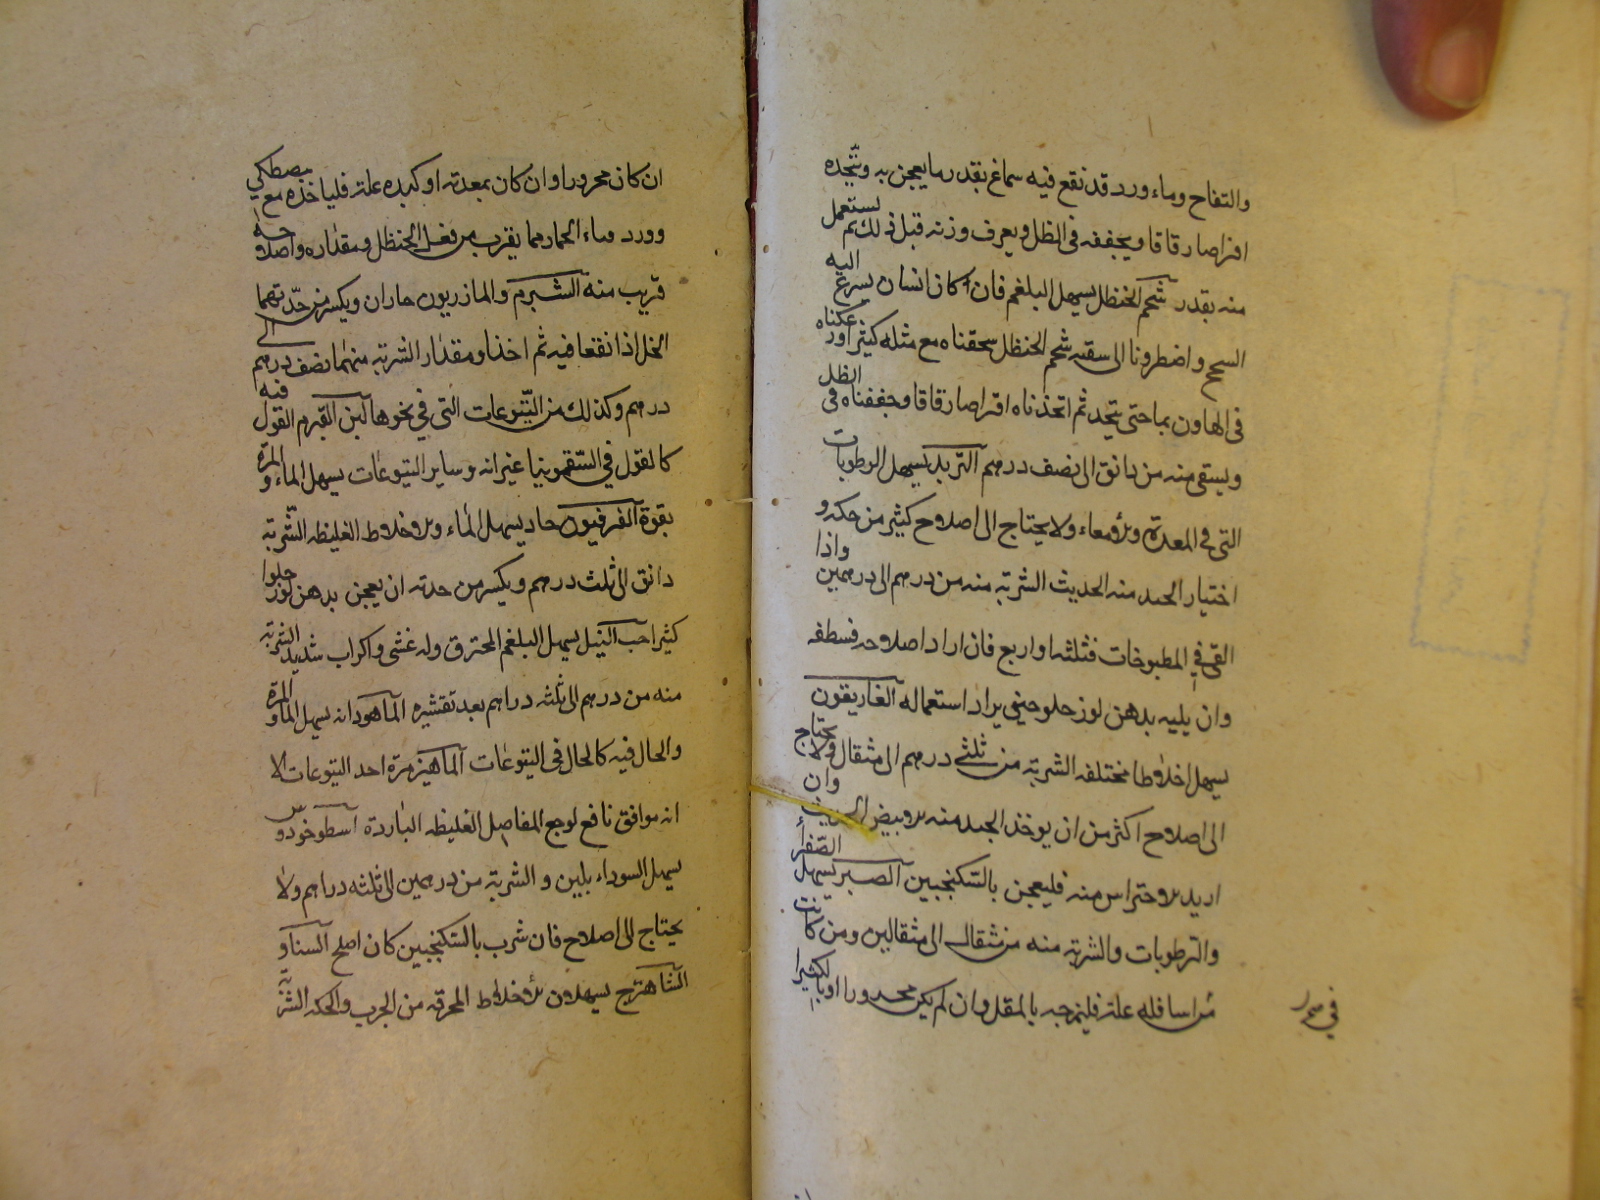 والتفاح وماء ورد قد نقع فيه سماغ بقدر ما يعجن به ويتخده
اقراصا رقاقا ويجففه فى الظل ويعرف وزنه قبل ذلك ثم يستعمل
منه بقدر شحم الحنظل يسهل البلغم فان كان انسان يسرع اليه
السحج واضطرونا الى سقيه شحم الحنظل سحقناه مع مثله كثيرا ودعكناه
فى الهاون بما حتى يتحد ثم اتخذناه اقراصا رقاقا وجففناه فى الظل
ويسقى منه من دانق الى نصف درهم التربد يسهل الرطوبات
التى فى المعدة والامعاء ولا يحتاج الى اصلاح كثير من حكه و
اختيار الجيد منه الحديث الشربة منه من درهم الى درهمين واذا
القى في المطبوخات فثلثه او اربع فان اراد اصلاحه
وان يليه بدهن لوز حلو حينى يراد استعماله الغاريقون
يسهل اخلاطا مختلفه الشربة من ثلثى درهم الى مثقال ولا يحتاج
الى اصلاح اكثر من ان يوخذ الجيد منه الابيض الحديث وان
اريد الاحتراس منه فليعجن بالسكنجبين الصبر يسهل الصفرا
والرطوبات والشربة منه من مثقال الى مثقالين ومن كانت
من اسافله علة فليمزجه بالمقل وان لم يكن محرورا او بالكثيرا
ان كان محرورا وان كان بمعدته او كبده علة فلياخذه مع مصطكي
وورد وماء الحمار مما يقرب من فعل الحنظل ومقداره واصلاحه
قريب منه الشبرم والمازريون حاران ويكسر من حدتهما
الخل اذا نقعا فيه ثم اخذا ومقدار الشربة منهما نصف درهم الى
درهم وكذلك من اليتوعات التى في نحوها لبن القول فيه
كالقول في السقمونيا غير انه وساير اليتوعات يسهل الماء والمرة
بقوة الفرفيون حاد يسهل الماء والاخلاط الغليظه الشربة
دانق الى ثلث درهم ويكسر من حدته ان يعجن بدهن لوز حلوا
كثيرا حب النيل يسهل البلغم المحترق وله غشى واكراب شديد الشربة
منه من درهم الى ثلثه دراهم بعد تقشيره الماهودانه يسهل الما والمرة
والحال فيه كالحال فى اليتوعات الماهيزهرة احد اليتوعات الا
انه موافق نافع لوجع المفاصل الغليظه الباردة اسطوخودوس
يسهل السوداء بلين والشربة من درهمين الى ثلثه دراهم ولا
يحتاج الى اصلاح فان شرب بالسكنجبين كان اصلح السنا و
الشاهترج يسهلان الاخلاط المحرقه من الجرب والحكه الشربة